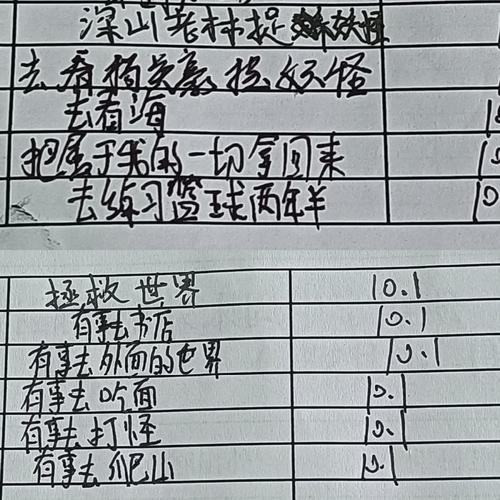 深山老林捉妖怪
去看猪英豪捉妖怪
去看海
把属于我的一切拿回来
去练习篮球两年半
拯救世界 10.1
有事去书店 10.1
有事去外面的世界 10.1
有事去吃面 10.1
有事去打怪 10.1
有事去爬山 10.1